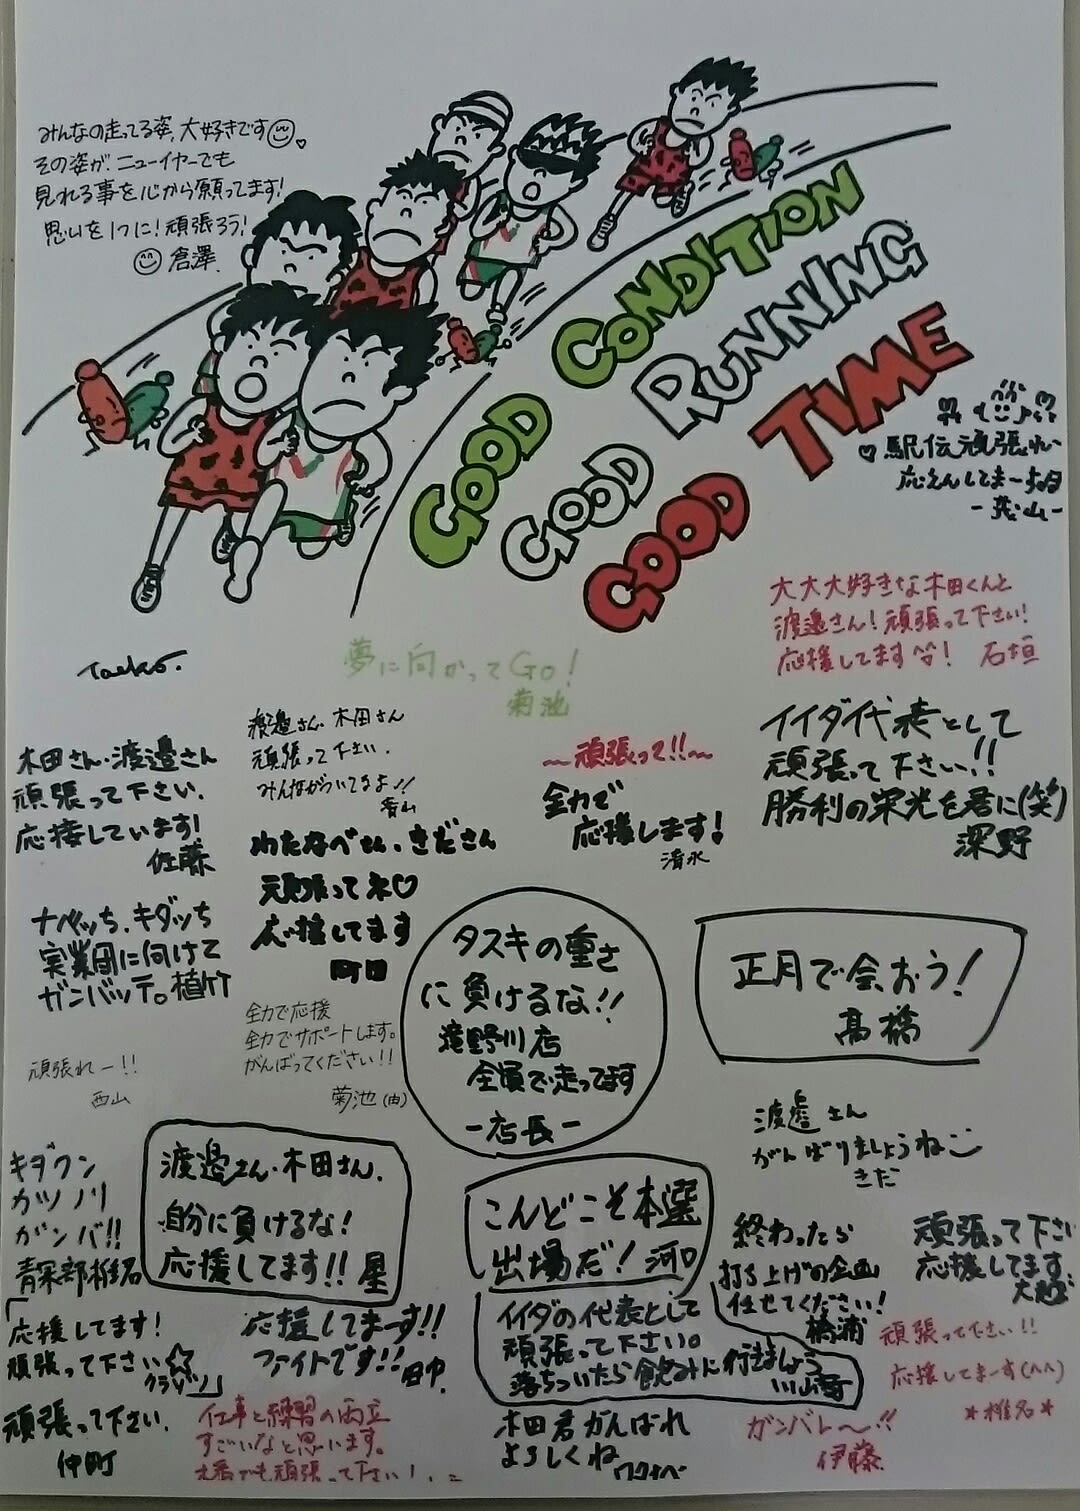 みんなの走ってる姿、大好きです
その姿が、ニューイヤーでも
見れる事を心から願ってます!
思いを1つに!頑張ろう!
倉澤
GOOD CONDITION
GOOD RUNNING
GOOD TIME
♡駅伝頑張れ〜
応えんしてまーす
Taeko.
大大大好きな木田くんと
渡邉さん!頑張って下さい!
応援してます!石垣
夢に向かってGo!
菊池
木田さん・渡邉さん
頑張って下さい.
応援しています!
佐藤
渡邉さん・木田さん
頑張って下さい.
みんながついてるよ!!
青山
〜頑張って!!〜
全力で
応援します!
清水
イイダ代表として
頑張って下さい!!
勝利の栄光を君に(笑)
深野
わたなべさん・きださん
頑張ってネ♡
応援してます
町田
ナベっち、キダッち
実業団に向けて
ガンバッテ。植竹
タスキの重さ
に負けるな!!
滝野川店
全員で走ってます
-店長-
正月で会おう!
髙橋
全力で応援
全力でサポートします。
がんばってください!!
菊池(由)
頑張れー!!
西山
渡邉さん
がんばりましょうね
きだ
キダクン
カツノリ
ガンバ!!
青果部椎名
渡邉さん・木田さん.
自分に負けるな!
応援してます!! 星
こんどこそ本選
出場だ!河口
終わったら
打ち上げの企画
任せてください!
橋浦
頑張って下さい
応援してます
大越
「応援してます!
頑張って下さい☆
応援してまーす!!
ファイトです!!
田中
イイダの代表として
頑張って下さい。
落ちついたら飲みに行きましょう
頑張って下さい!!
応援してまーす(^^)
*椎名*
頑張って下さい.
仲町
仕事と練習の両立
すごいなと思います。
頑張って下さい!
木田君がんばれ
よろしくね
ワタナベ
ガンバレ〜!!
伊藤